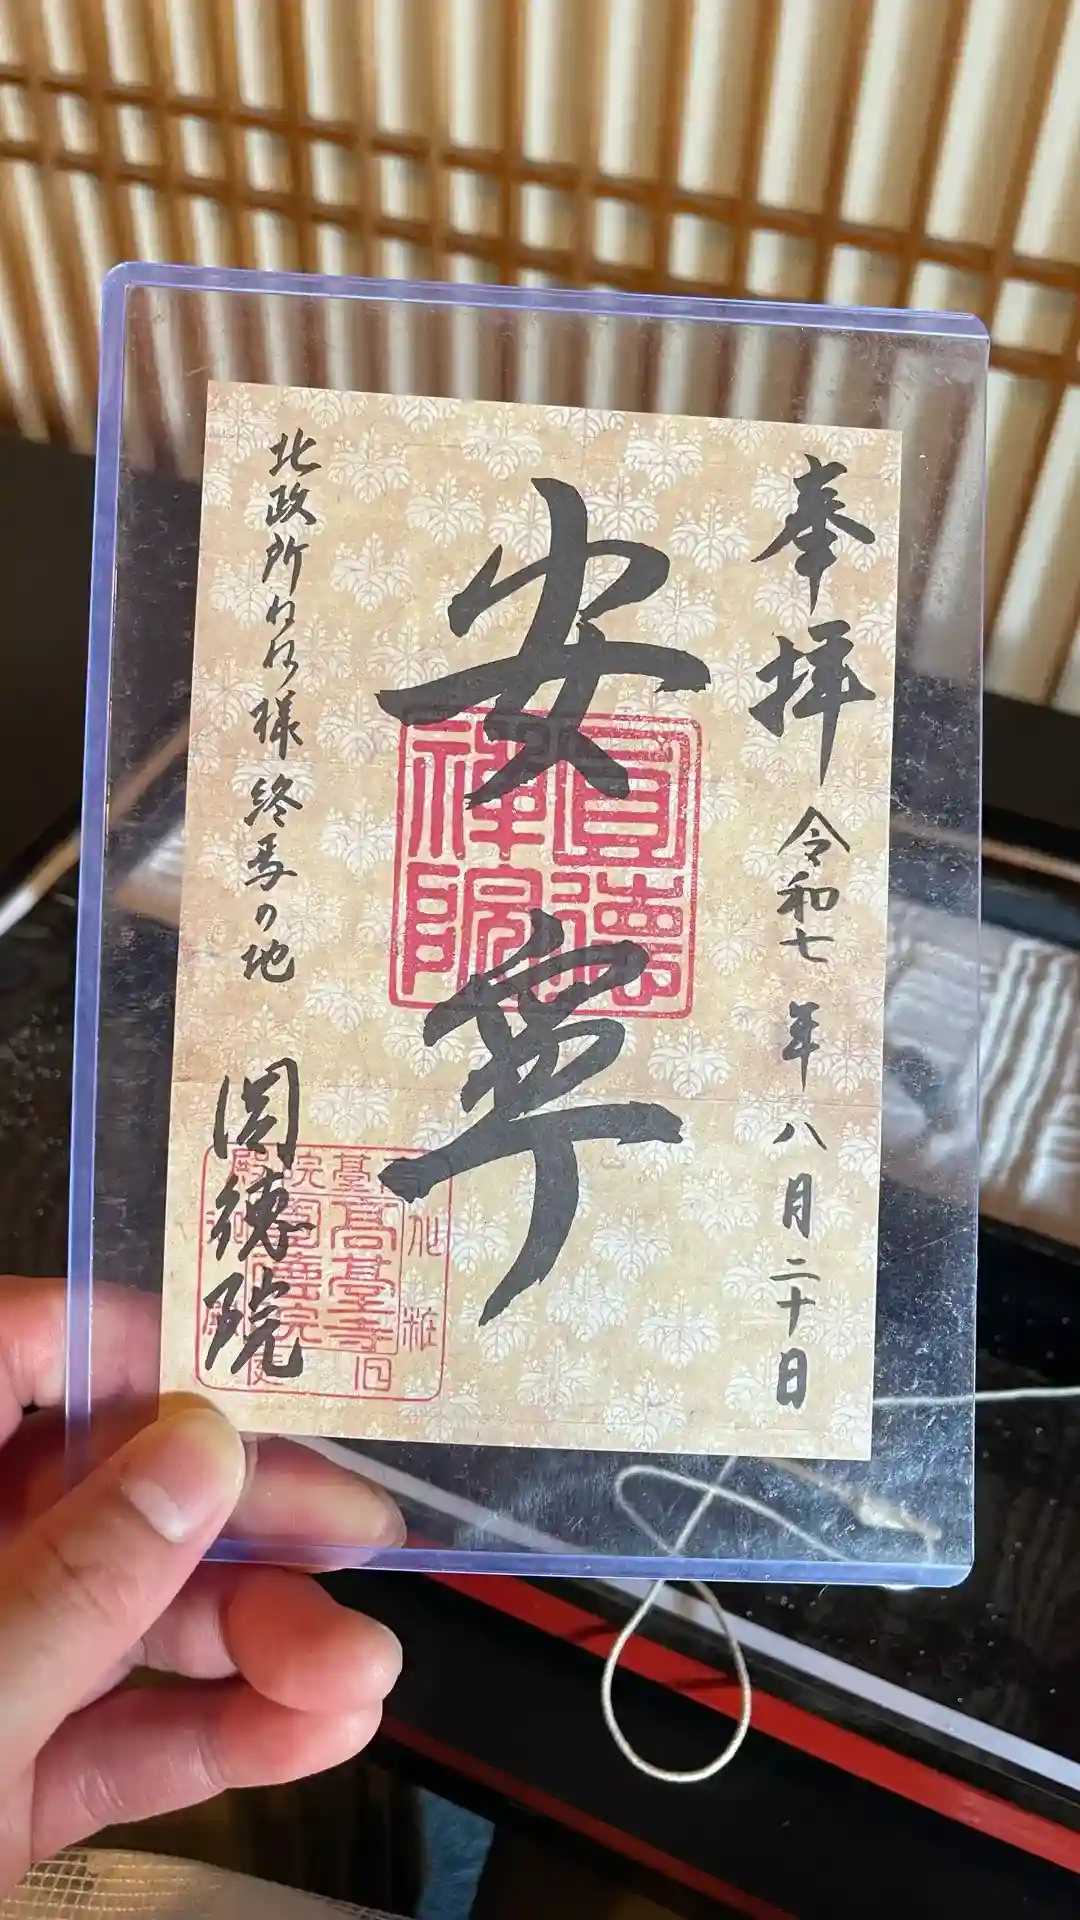 奉拝 令和七年八月二十日
安寧
圓徳禅院
北政所ねね様終焉の地 圓徳院
高臺寺
圓徳院